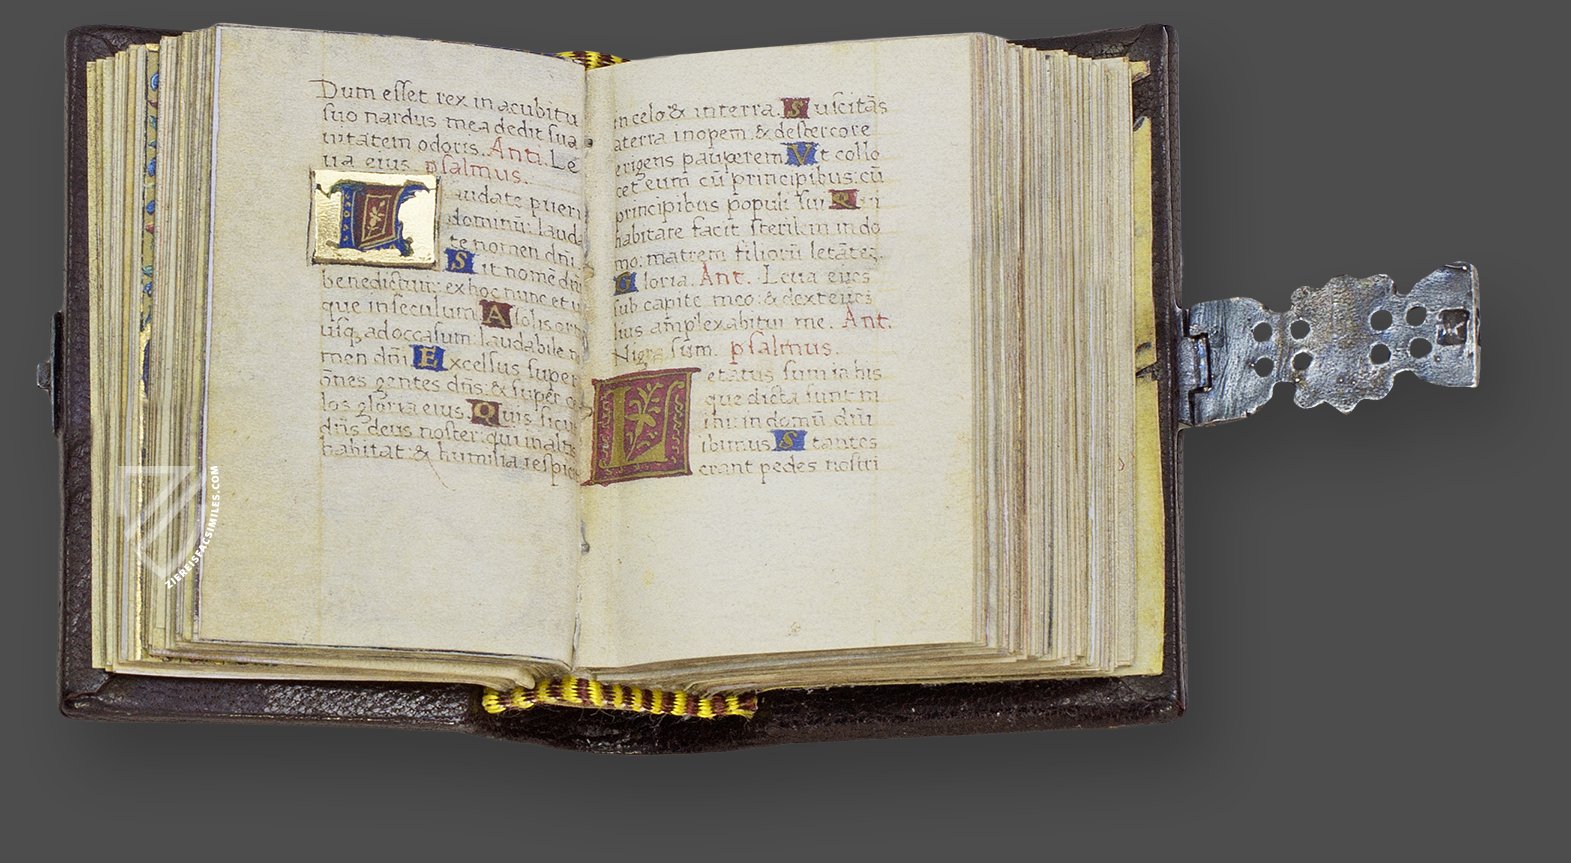 Dum esset rex in acubitu
suo nardus mea dedit sua
uitatem odoris. Anti. Le
ua eius psalmus.
Laudate pueri
dominū: lauda
te nomen dni
Sit nomē dni
benedictum: ex hoc nunc et u
que in seculum. A solis ort
usq; ad occasum: laudabile n
men dn̄i. Excelsus super
ōnes gentes dn̄s: & super c
los gloria eius. Quis sicut
dn̄s deus noster: qui in altis
habitat: & humilia respic
in celo & in terra. Suscitās
a terra inopem: & de stercore
erigens pauperem. Vt collo
cet eum: cū principibus: cū
principibus populi sui. Qui
habitare facit sterilem in do
mo: matrem filiorū letātez.
Gloria. Ant. Leua eius
sub capite meo: & dextera eius
lius amplexabitur me. Ant.
Nigra sum. psalmus.
Letatus sum in his
que dicta sunt m
ihi: in domū dn̄i
ibimus. Stantes
erant pedes nostri
ZIEREISFACSIMILES.COM